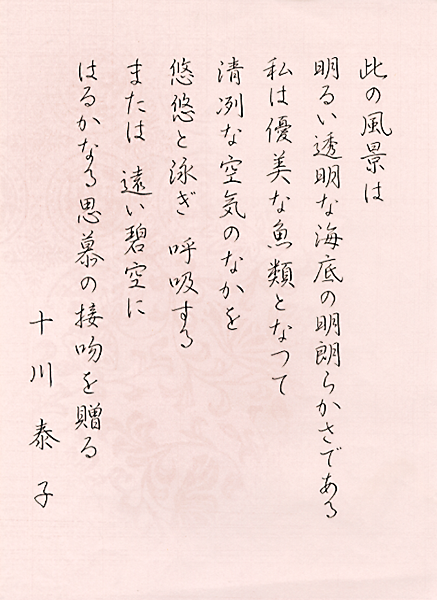 此の風景は
明るい透明な海底の明朗らかさである
私は優美な魚類となつて
清冽な空気のなかを
悠悠と泳ぎ 呼吸する
または 遠い碧空に
はるかなる思慕の接吻を贈る
十川泰子